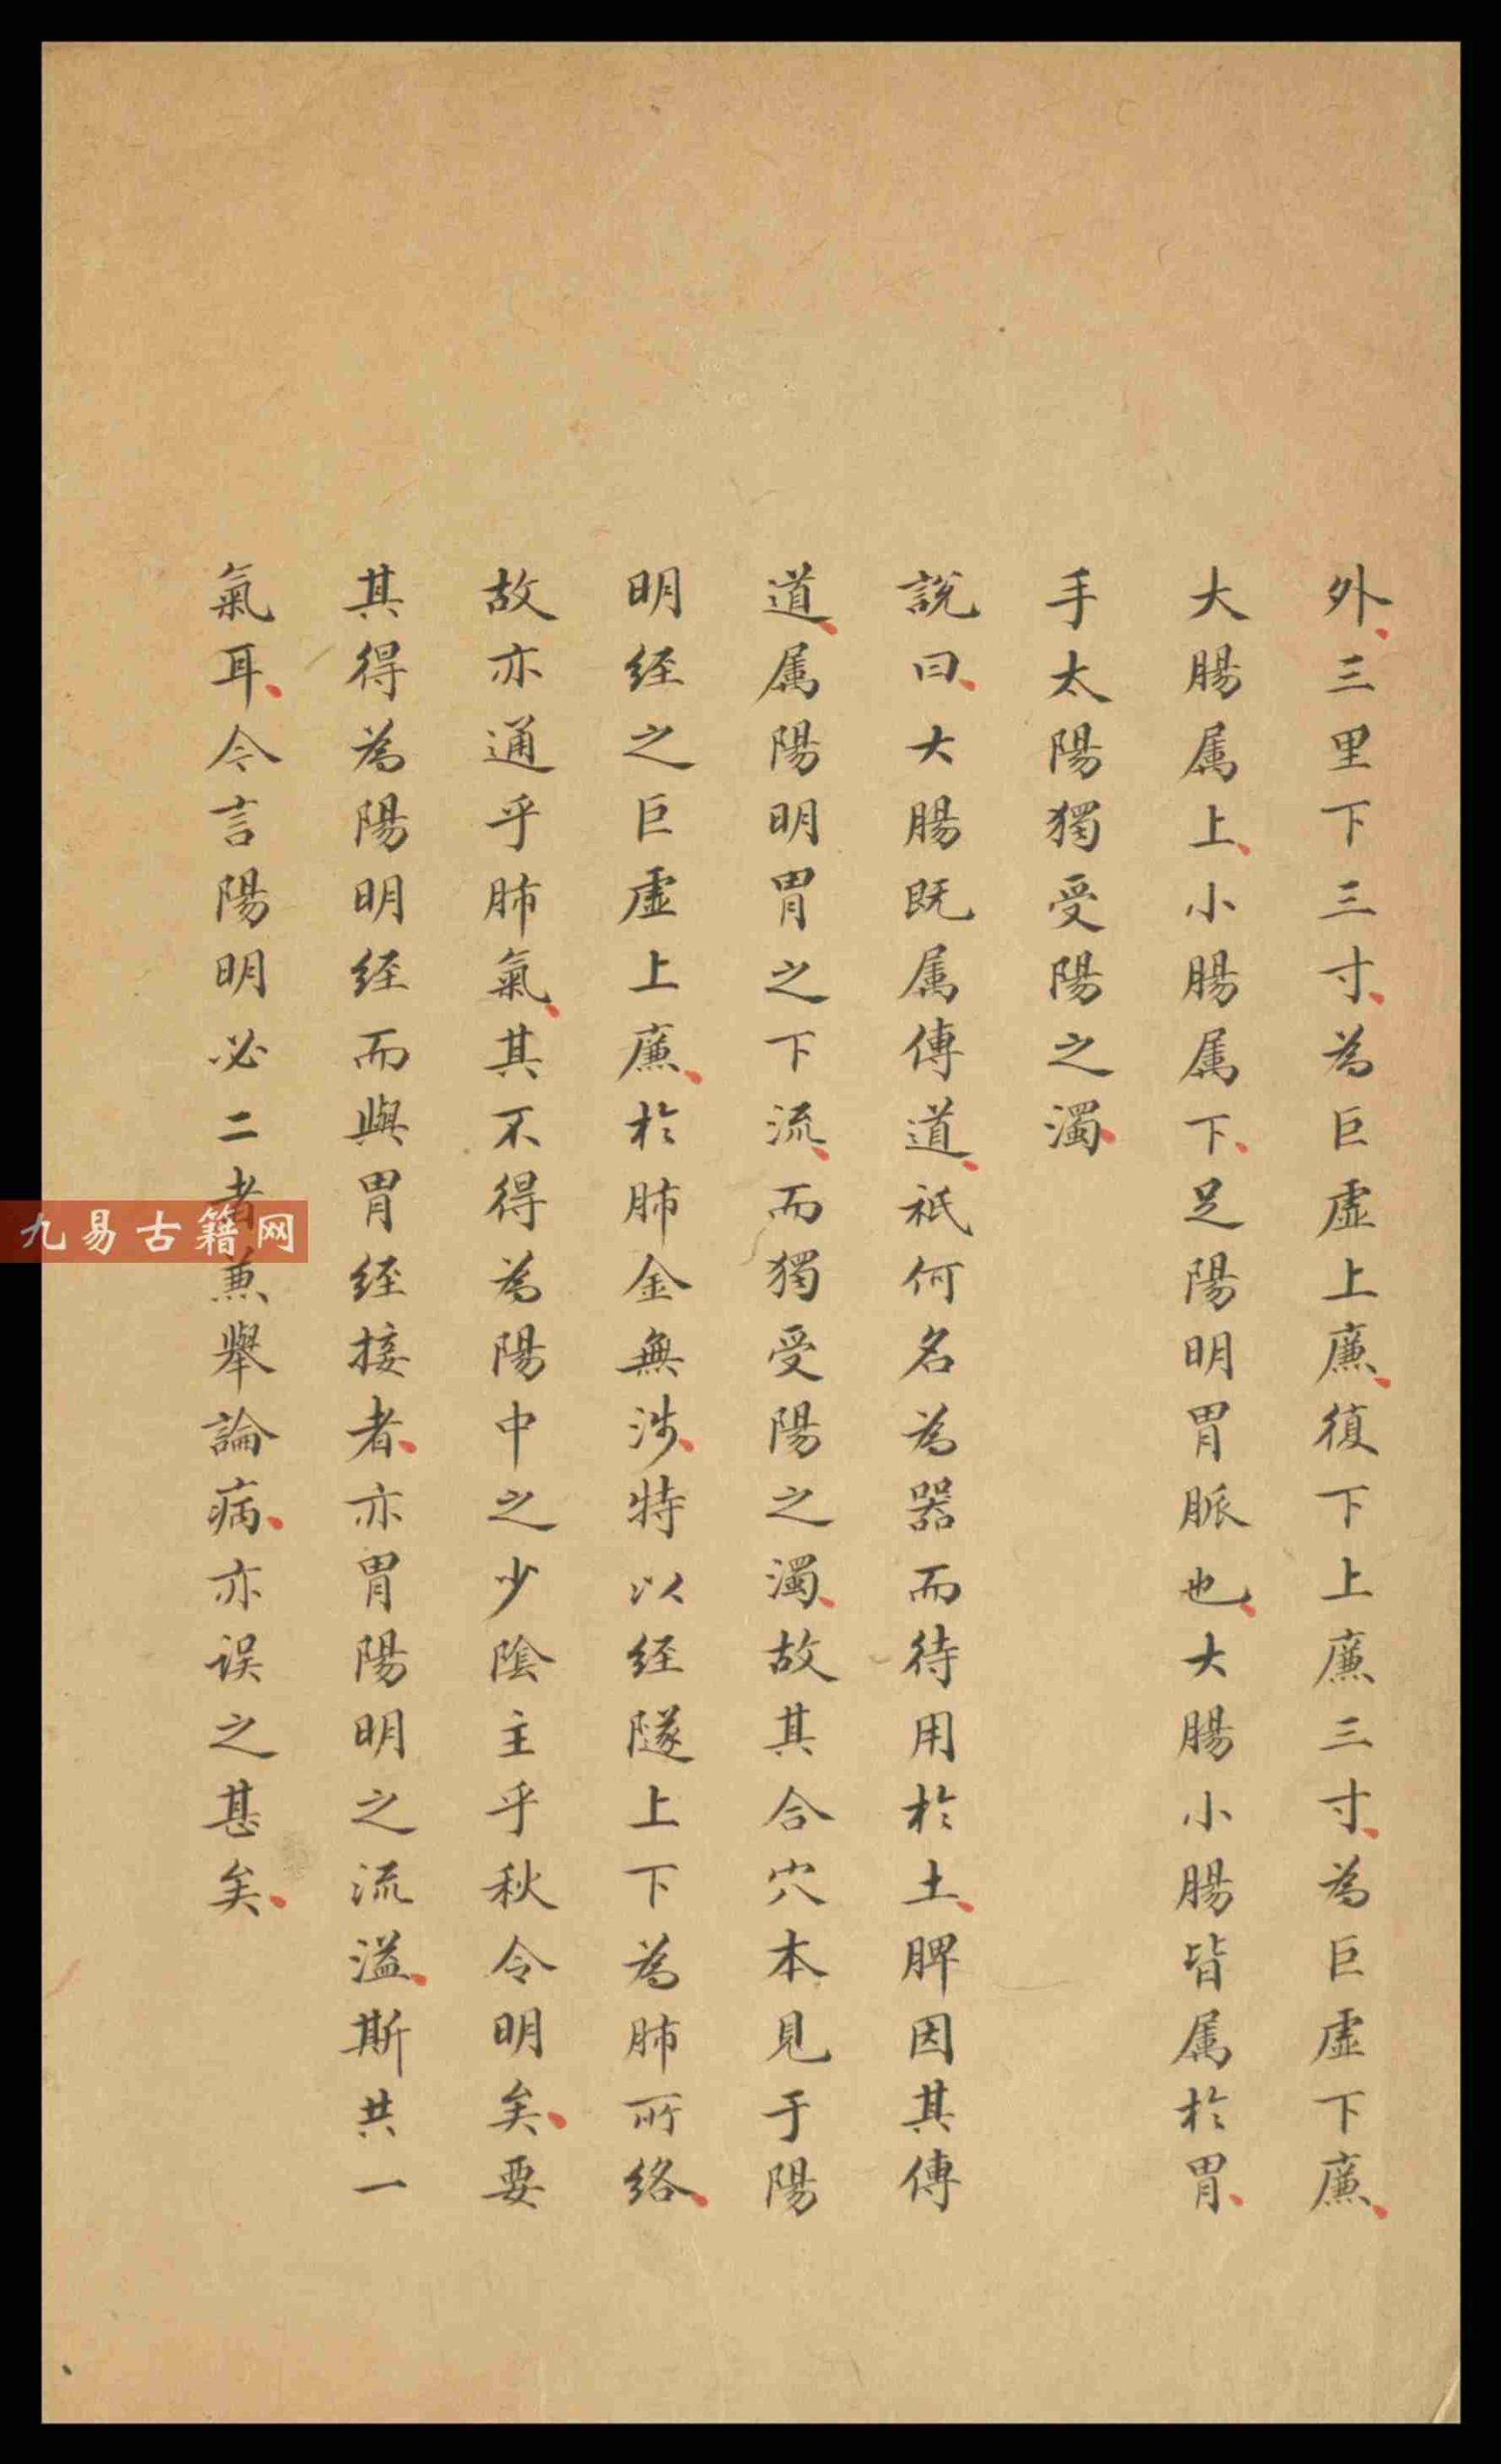 外、三里下三寸、為巨虛上廉、復下上廉三寸、為巨虛下廉、
大腸属上、小腸属下、足陽明胃脈也、大腸小腸皆属於胃、
手太陽獨受陽之濁、
說曰、大腸既属傳道、祇何名為器而待用於土、脾因其傳
道、属陽明胃之下流、而獨受陽之濁、故其合穴本見于陽
明経之巨虛上廉、於肺金無涉、特以経隧上下為肺所絡、
故亦通乎肺氣、其不得為陽中之少陰主乎秋令明矣、要
其得為陽明経而與胃経接者、亦胃陽明之流溢、斯共一
氣耳、今言陽明必二者兼舉論病、亦误之甚矣、
九易古籍网